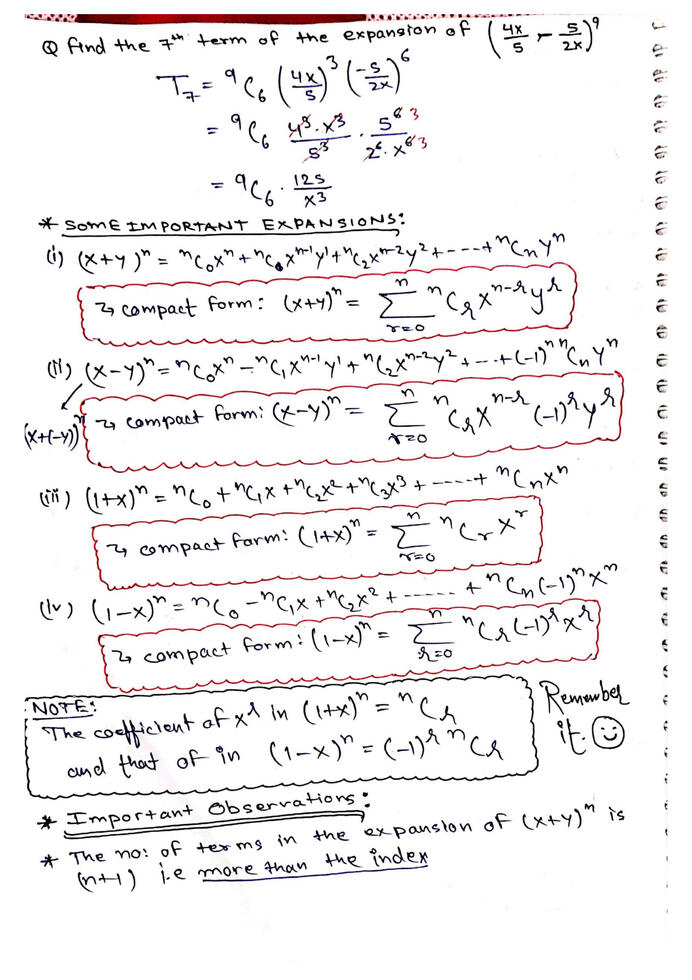 Q Find the 7th term of the expansion of (4x/5 - 5/2x)^9
T_7 = ^9C_6 (4x/5)^3 (-5/2x)^6
= ^9C_6 4^3·x^3/5^3 · 5^6 3/2^6·x^6 3
= ^9C_6 · 125/x^3
* SOME IMPORTANT EXPANSIONS:
(i) (x+y)^n = ^nC_0x^n + ^nC_1x^n-1y^1 + ^nC_2x^n-2y^2 + ---- + ^nC_ny^n
↳ compact form: (x+y)^n = Σ_{r=0}^{n} ^nC_r x^n-r y^r
(ii) (x-y)^n = ^nC_0x^n - ^nC_1x^n-1y^1 + ^nC_2x^n-2y^2 + --- + (-1)^n ^nC_n y^n
(x+(-y))^n ↳ compact form: (x-y)^n = Σ_{r=0}^{n} ^nC_r x^n-r (-1)^r y^r
(iii) (1+x)^n = ^nC_0 + ^nC_1x + ^nC_2x^2 + ^nC_3x^3 + ----- + ^nC_nx^n
↳ compact form: (1+x)^n = Σ_{r=0}^{n} ^nC_r x^r
(iv) (1-x)^n = ^nC_0 - ^nC_1x + ^nC_2x^2 + ------ + ^nC_n(-1)^n x^n
↳ compact form: (1-x)^n = Σ_{r=0}^{n} ^nC_r (-1)^r x^r
NOTE:
The coefficient of x^r in (1+x)^n = ^nC_r
and that of in (1-x)^n = (-1)^r ^nC_r
Remember
it. ☺
* Important Observations:
* The no: of terms in the expansion of (x+y)^n is
(n+1) i.e more than the index